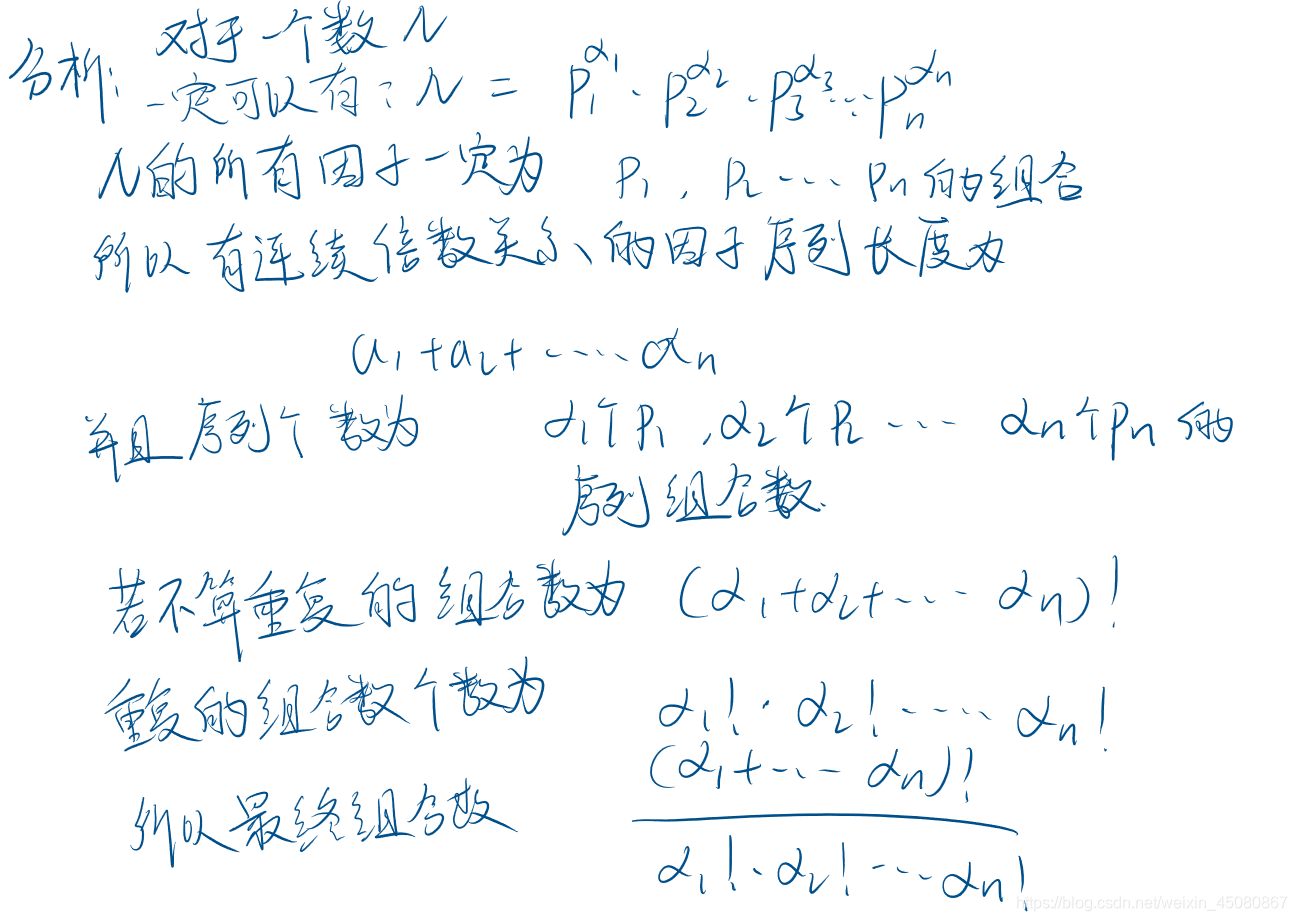 分析: 对于一个数 N
一定可以有: N = p₁^α₁ · p₂^α₂ · p₃^α₃ ··· pₙ^αₙ
N的所有因子一定为 p₁, p₂ ···· pₙ 的组合
所以有连续倍数关系的因子序列长度为
α₁+α₂+ ····· αₙ
并且序列个数为 α₁个p₁, α₂个p₂ ···· αₙ个pₙ 的
序列组合数.
若不算重复的组合数为 (α₁+α₂+ ···· αₙ)!
重复的组合数个数为 α₁! · α₂! ····· αₙ!
所以最终组合数 (α₁+ ···· αₙ)! / α₁! · α₂! ···· αₙ!
https://blog.csdn.net/weixin_45080867